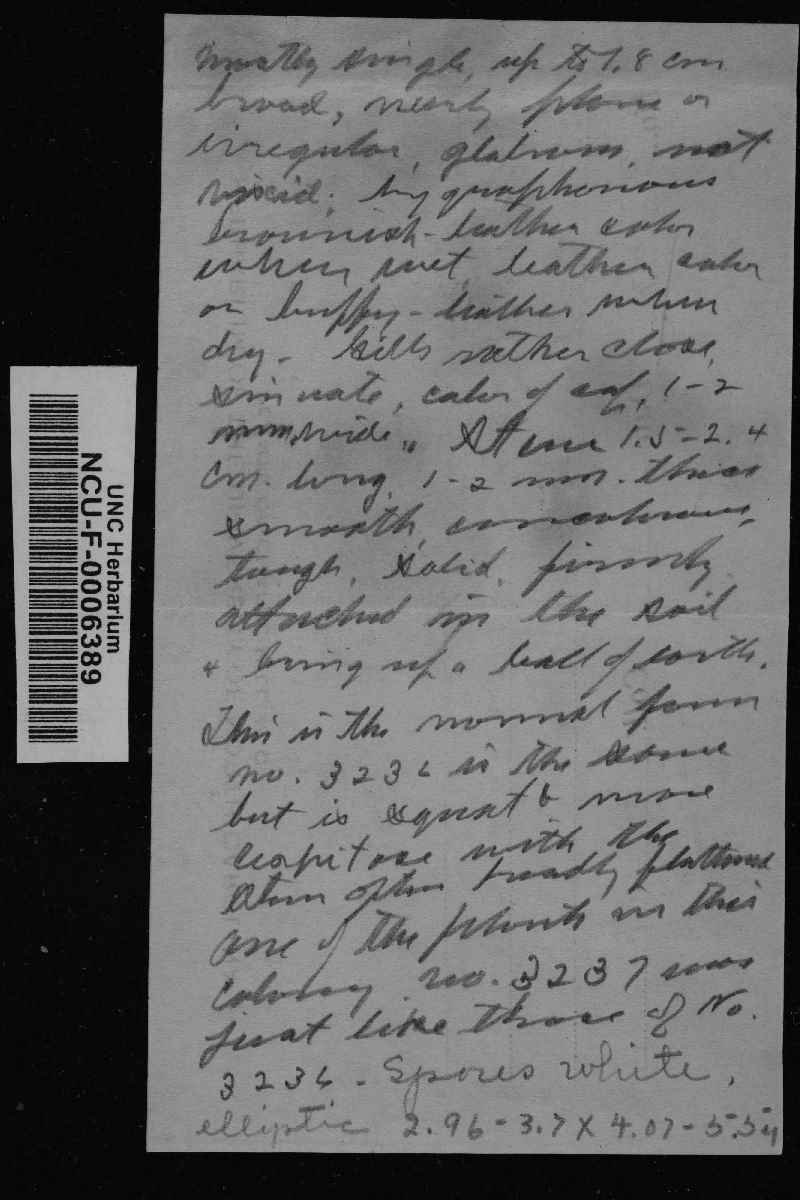 mostly single, up to 1.8 cm
broad, nearly plane or
irregular, glabrous, not
viscid, hygrophanous
brownish-leather color
when wet, leather color
or buffy-leather when
dry. Gills rather close,
sinuate, color of cap, 1-2
mm. wide. Stem 1.5-2.4
cm. long, 1-2 mm. thick
smooth, concolorous,
tough, solid, firmly
attached in the soil
& bring up a ball of earth.
This is the normal form
no. 3236 is the same
but is squat & more
cespitose with the
stem often broadly flattened
One of the plants in this
colony no. 3237 was
just like those of No.
3236 - Spores white,
elliptic 2.96-3.7 X 4.07-5.5µ
UNC Herbarium
NCU-F-0006389